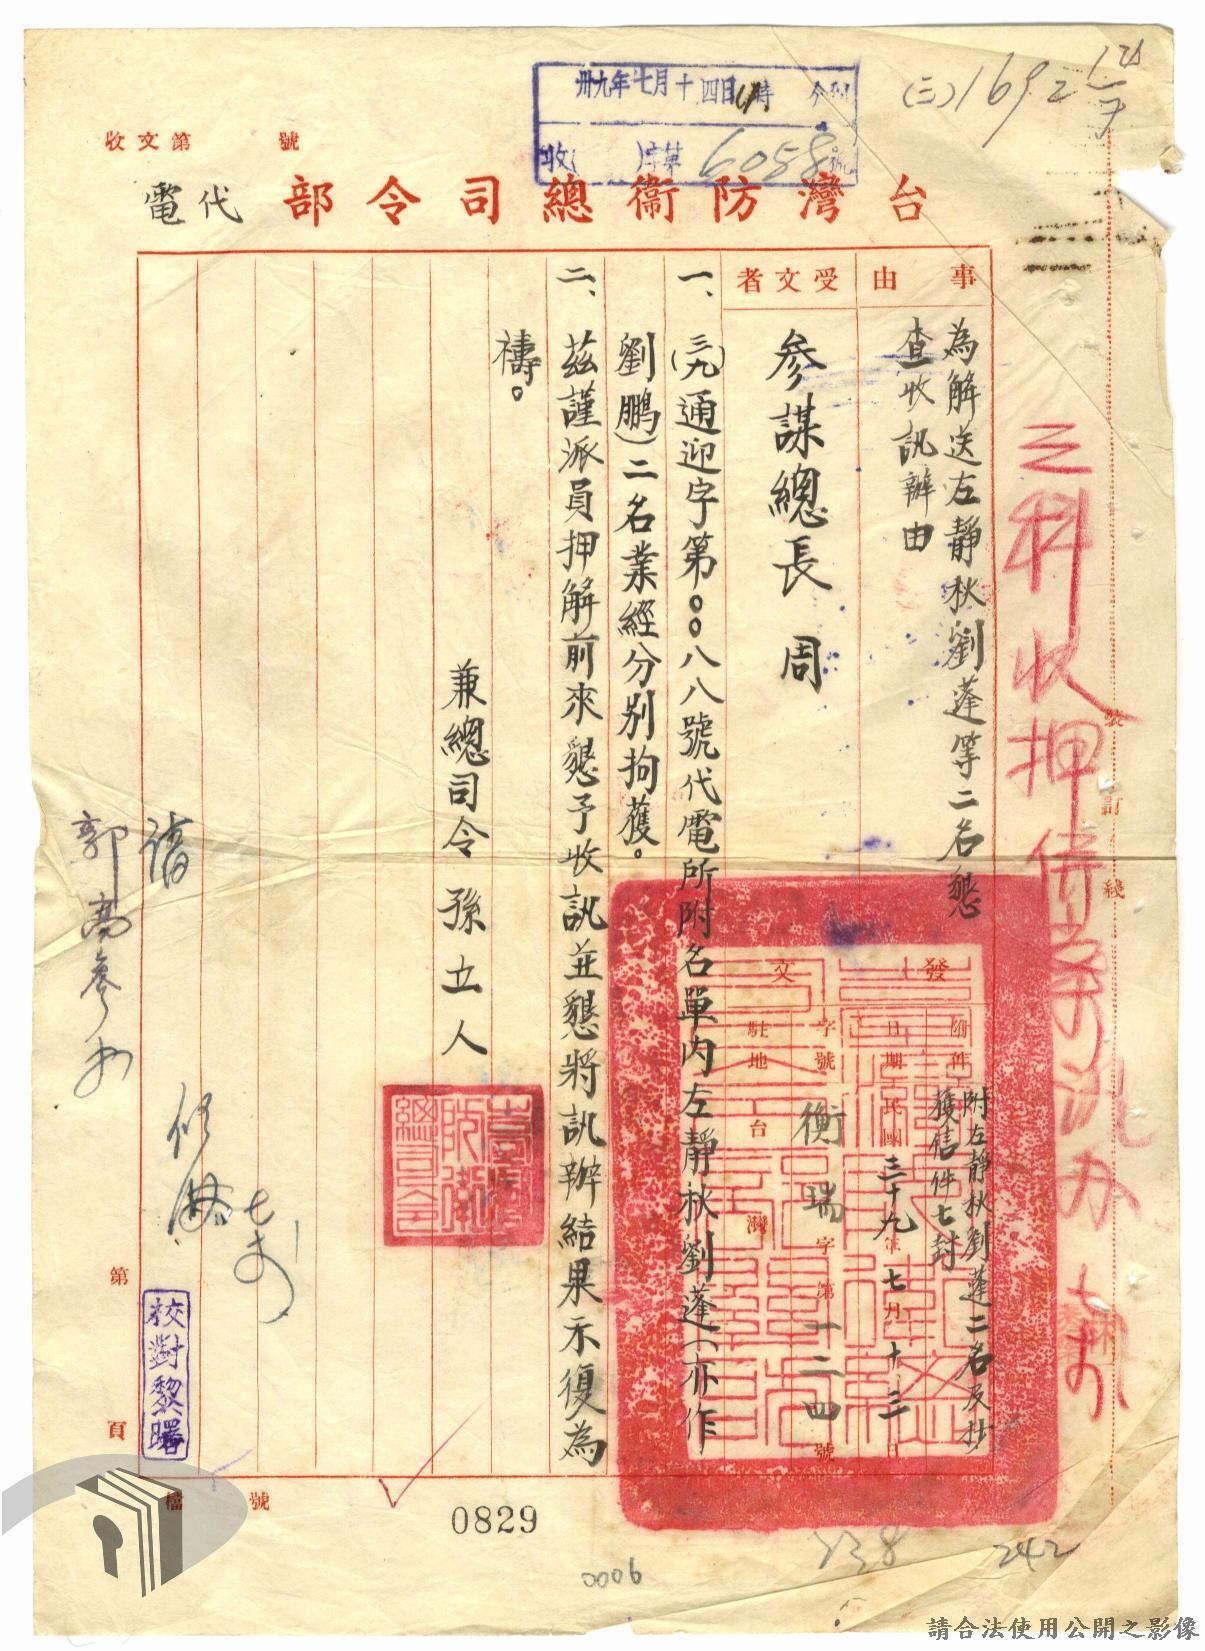 卅九年七月十四日 時
收( )字第6058號
(三)1692
收文第 號
台灣防衞總司令部代電
事由
為解送左靜秋劉蓬等二名懇
查收訊辦由
受文者
參謀總長 周
發文
附件
附左靜秋劉蓬二名及抄
獲信件七封
日期 民國三十九年七月十三日
字號 衡瑞字第一二四號
駐地 台灣
一、(三九)通迎字第〇〇八八號代電所附名單內左靜秋劉蓬(亦作
劉鵬)二名業經分別拘獲。
二、茲謹派員押解前來懇予收訊並懇將訊辦結果示復為
禱。
兼總司令孫立人
裝訂線
請
郭高參
校對黎曙
第 頁
檔 號
0829
0006
238
242
請合法使用公開之影像